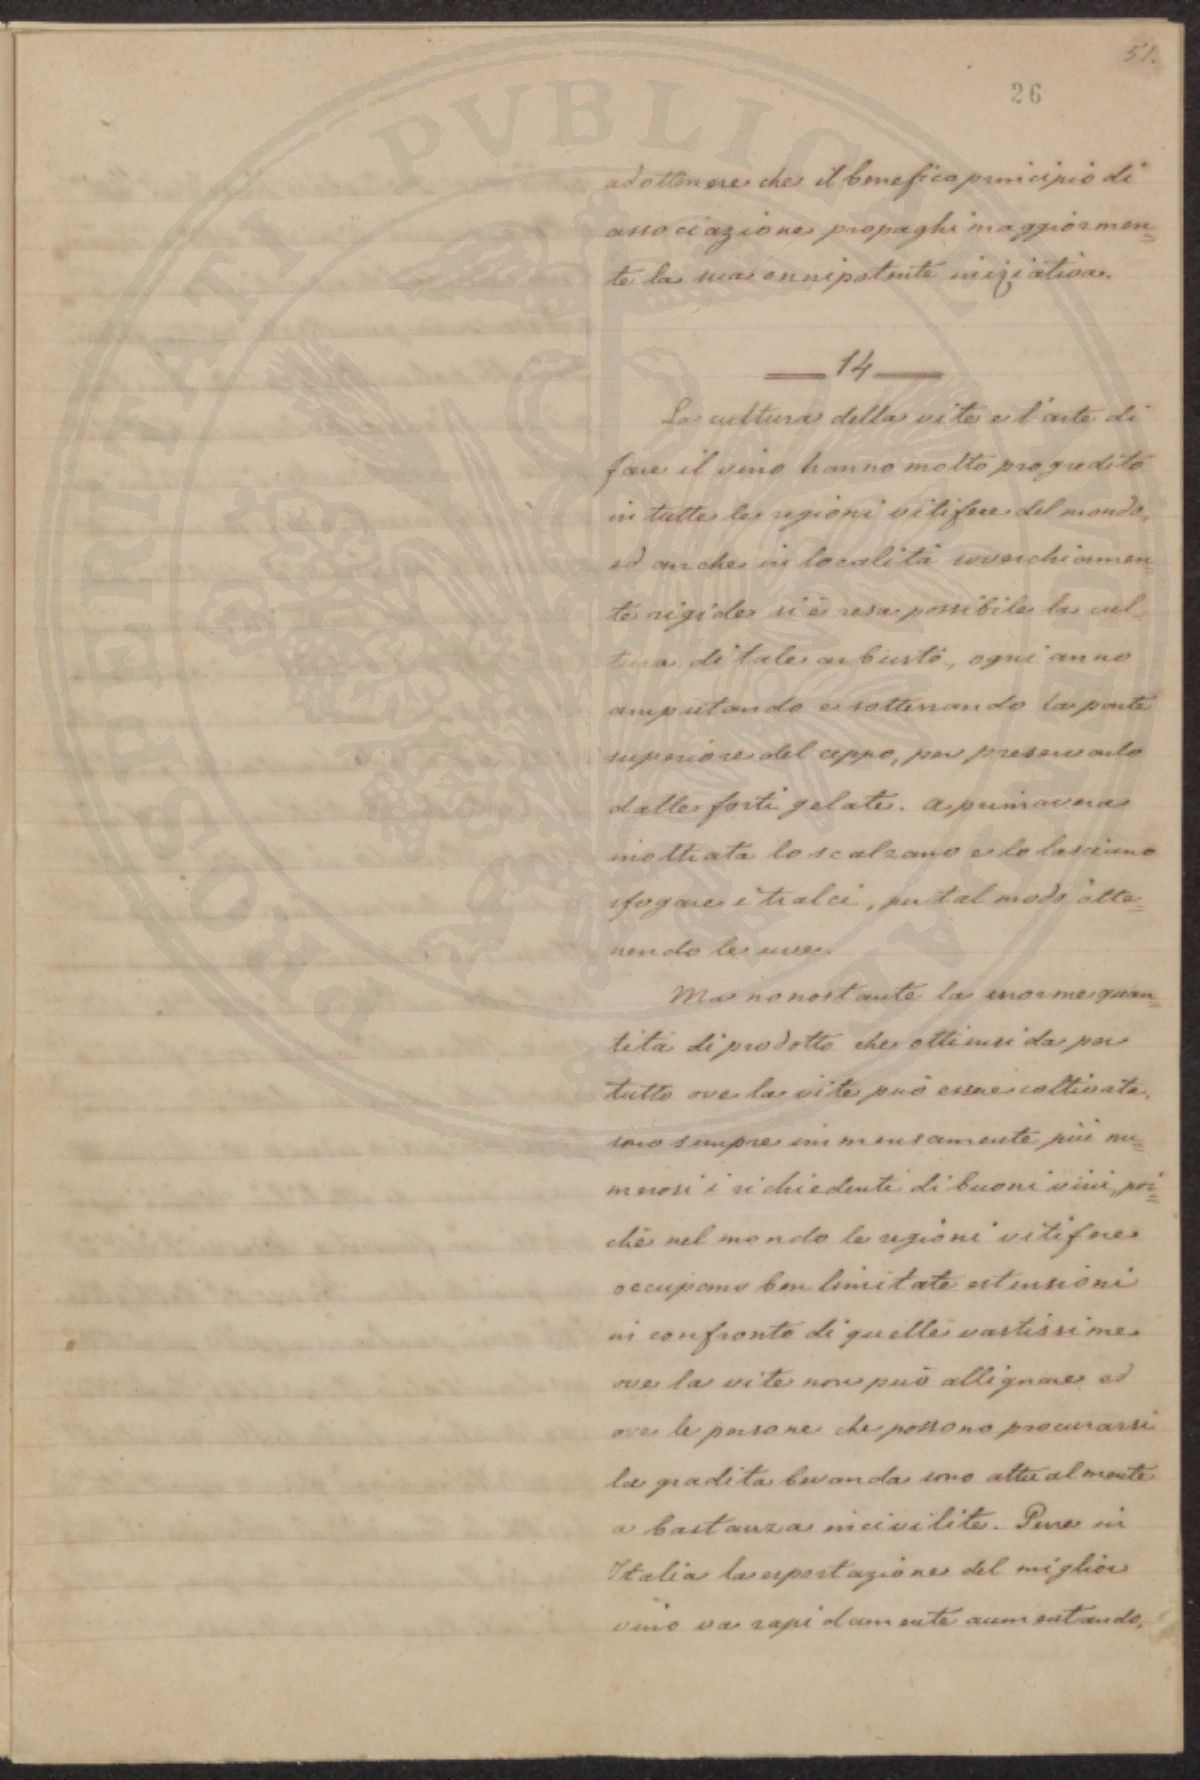 51.
26
ad ottenere che il benefico principio di
associazione propaghi maggiormen=
te la sua onnipotente iniziativa.
14
La cultura della vite e l'arte di
fare il vino hanno molto progredito
in tutte le regioni vitifere del mondo,
ed anche in località soverchiamen=
te rigide si è resa possibile la cul-
tura di tale arbusto, ogni anno
amputando e sotterrando la parte
superiore del ceppo, per preservarlo
dalle forti gelate. A primavera
inoltrata lo scalzano e lo lasciano
sfogare i tralci, per tal modo otte=
nendo le uve.
Ma nonostante la enorme quan=
tità di prodotto che ottiensi da per
tutto ove la vite può essere coltivata,
sono sempre immensamente più nu=
merosi i richiedenti di buoni vini, poi=
chè nel mondo le regioni vitifere
occupano ben limitate estensioni
in confronto di quelle vastissime
ove la vite non può allignare ed
ove le persone che possono procurarsi
la gradita bevanda sono attualmente
a bastanza incivilite. Pure in
Italia la esportazione del miglior
vino va rapidamente aumentando,
PROSPERITATI PVBLICAE AVGENDAE